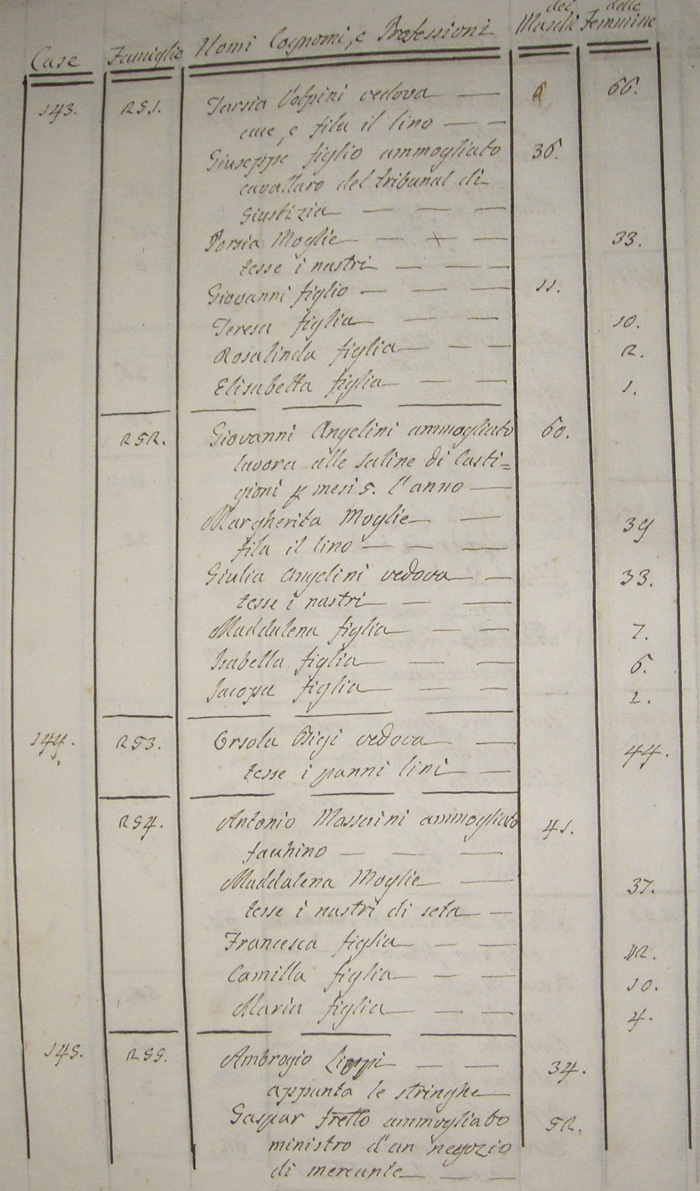 dei delle
Case Famiglie Nomi Cognomi, e Professioni Maschi Femmine
143. 251. Tarsia Volpini vedova 66.
cuce, e fila il lino
Giuseppe figlio ammogliato 36.
cavallaro del tribunal di
Giustizia
Porsia Moglie 33.
tesse i nastri
Giovanni figlio 11.
Teresa figlia 10.
Rosalinda figlia 2.
Elisabetta figlia 1.
252. Giovanni Angelini ammogliato 60.
lavora alle saline di Casti=
gioni p mesi 5. l'anno
Margherita Moglie 39
fila il lino
Giulia Angelini vedova 33.
tesse i nastri
Maddalena figlia 7.
Isabella figlia 6.
Jacopa figlia 2.
144. 253. Orsola Bigi vedova 44.
tesse i panni lini
254. Antonio Masserini ammogliato 41.
fachino
Maddalena Moglie 37.
tesse i nastri di seta
Francesca figlia 12.
Camilla figlia 10.
Maria figlia 4.
145. 255. Ambrogio 34.
appunta le stringhe
Gaspar fretto ammogliato 52.
ministro d'un negozio
di mercante